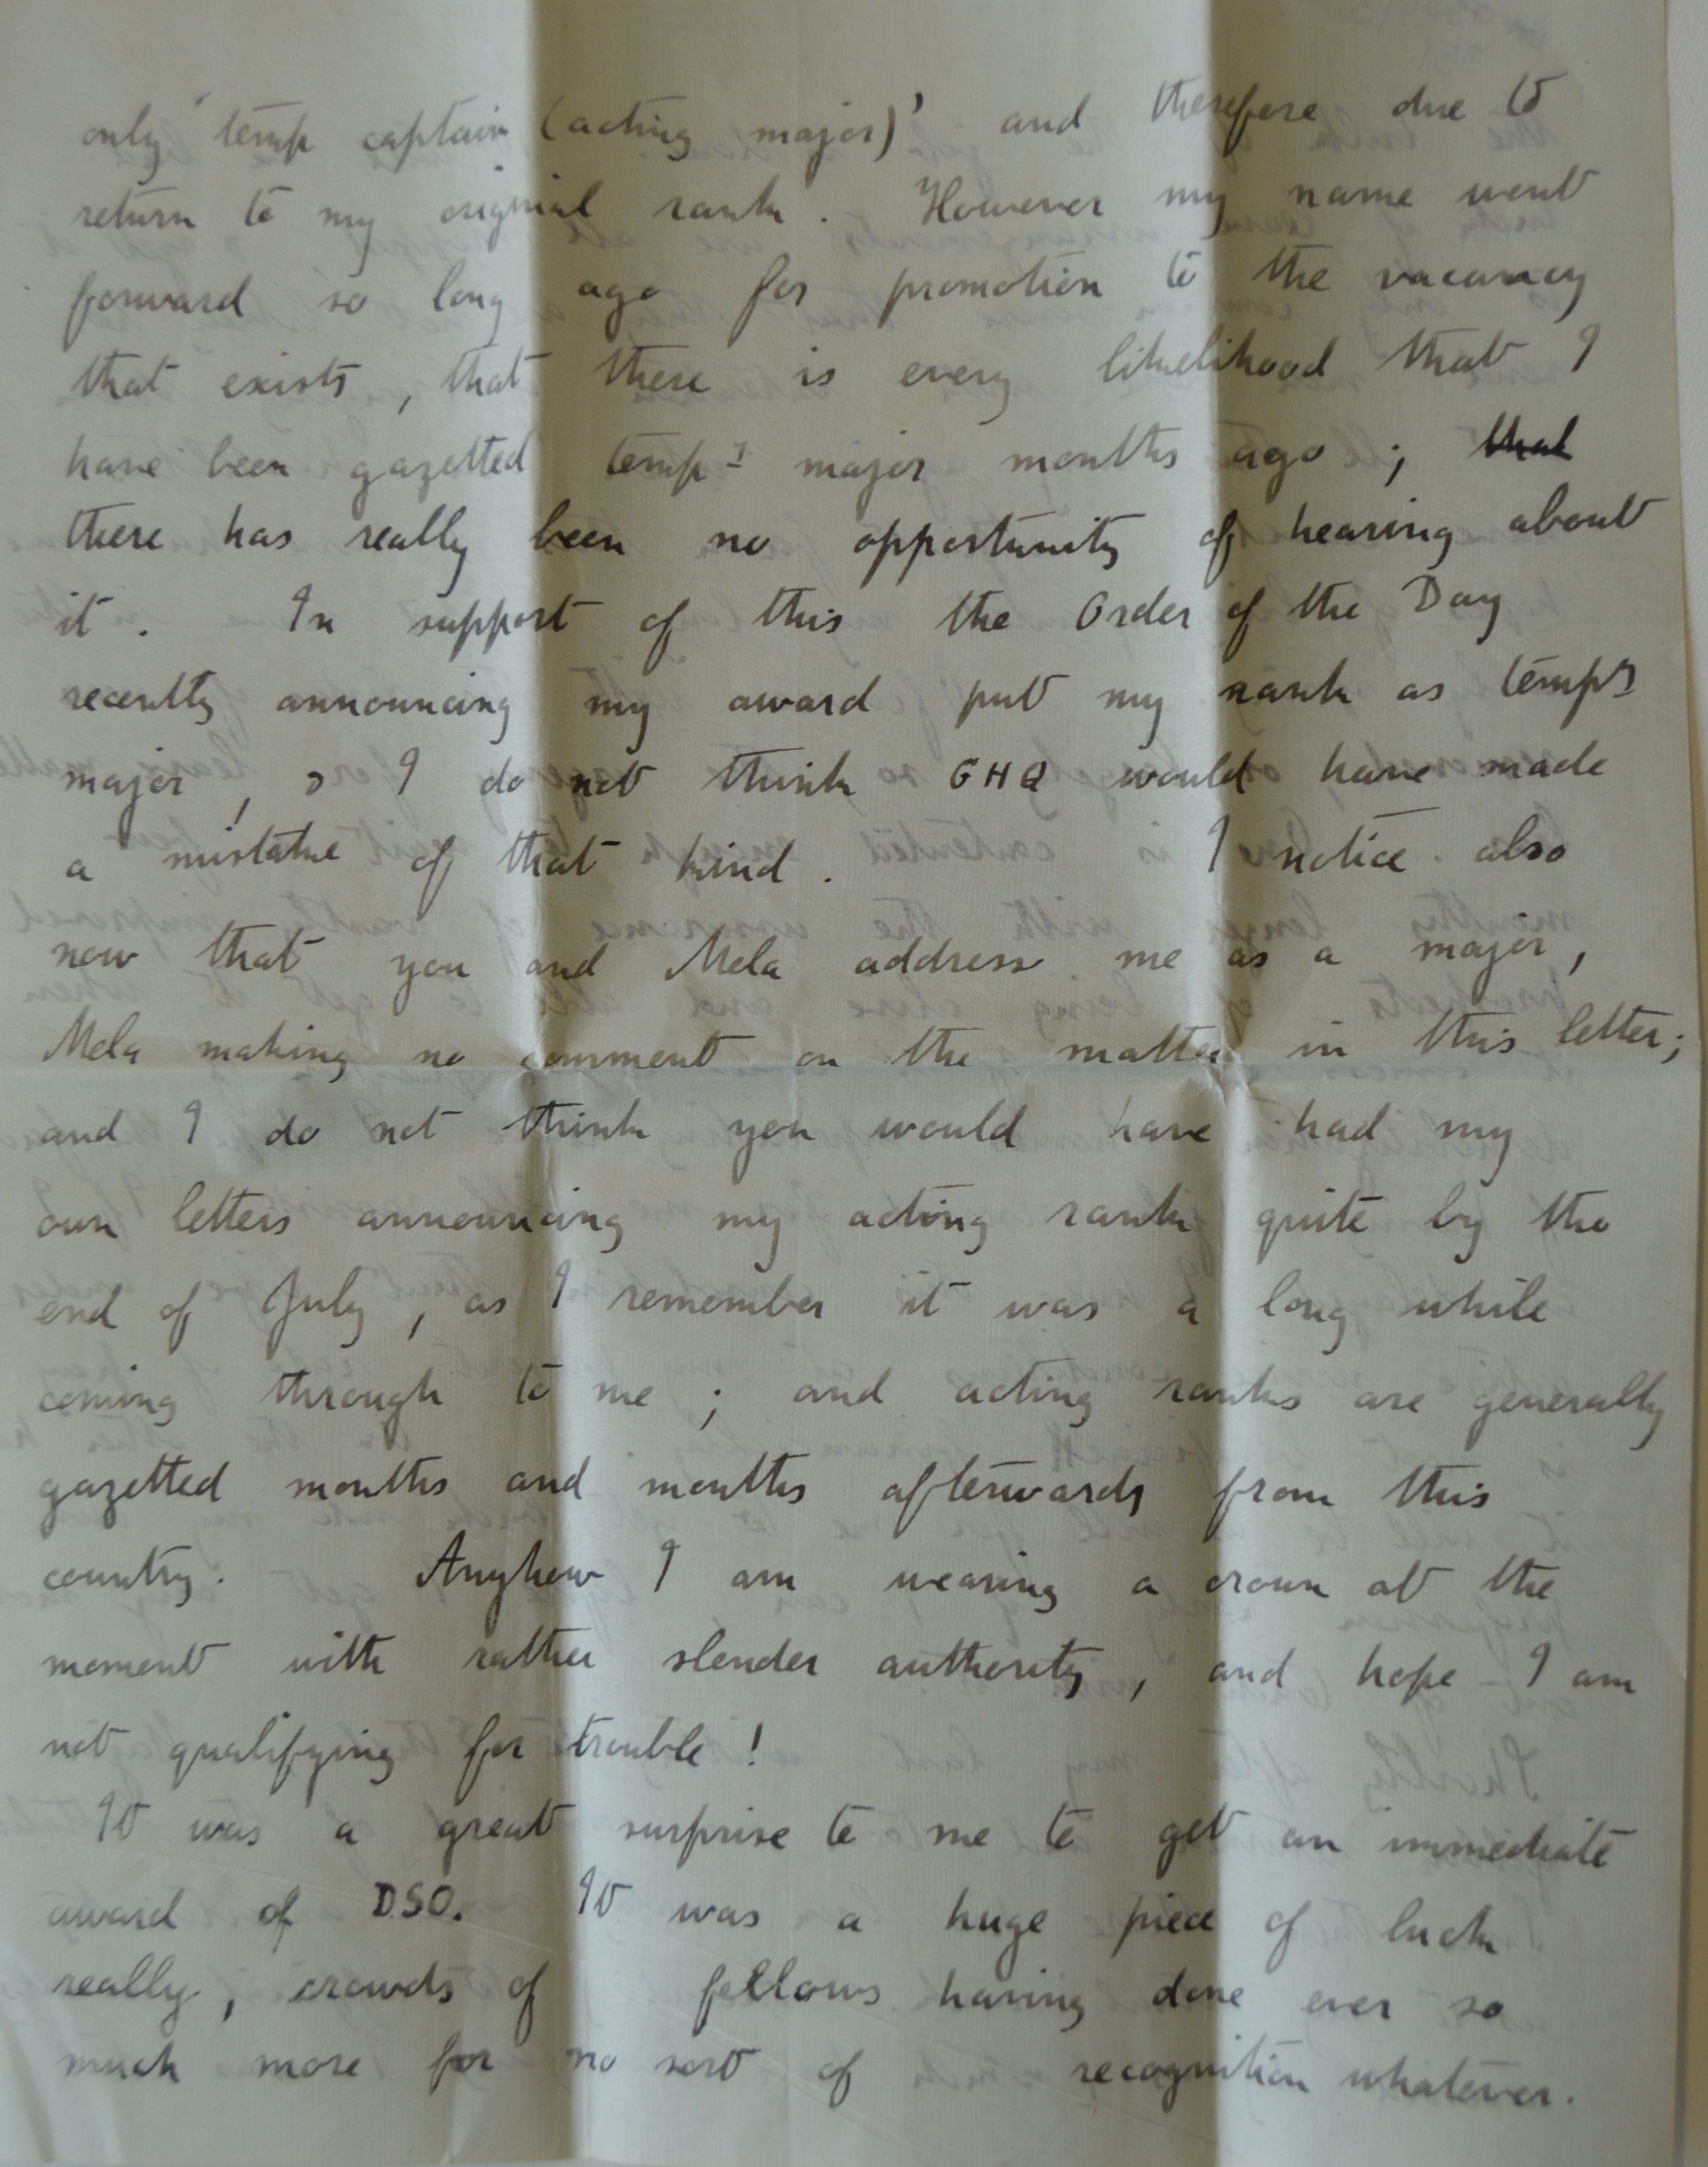 only 'temp captain (acting major)' and therefore due to
return to my original rank. However my name went
forward so long ago for promotion to the vacancy
that exists, that there is every likelihood that I
have been gazetted tempy major months ago; that
there has really been no opportunity of hearing about
it. In support of this the Order of the Day
recently announcing my award put my rank as tempy
major, & I do not think GHQ would have made
a mistake of that kind. I notice also
now that you and Mela address me as a major,
Mela making no comment on the matter in this letter;
and I do not think you would have had my
own letters announcing my acting rank quite by the
end of July, as I remember it was a long while
coming through to me; and acting ranks are generally
gazetted months and months afterwards from this
country. Anyhow I am wearing a crown at the
moment with rather slender authority, and hope I am
not qualifying for trouble!
It was a great surprise to me to get an immediate
award of DSO. It was a huge piece of luck
really, crowds of fellows having done ever so
much more for no sort of recognition whatever.